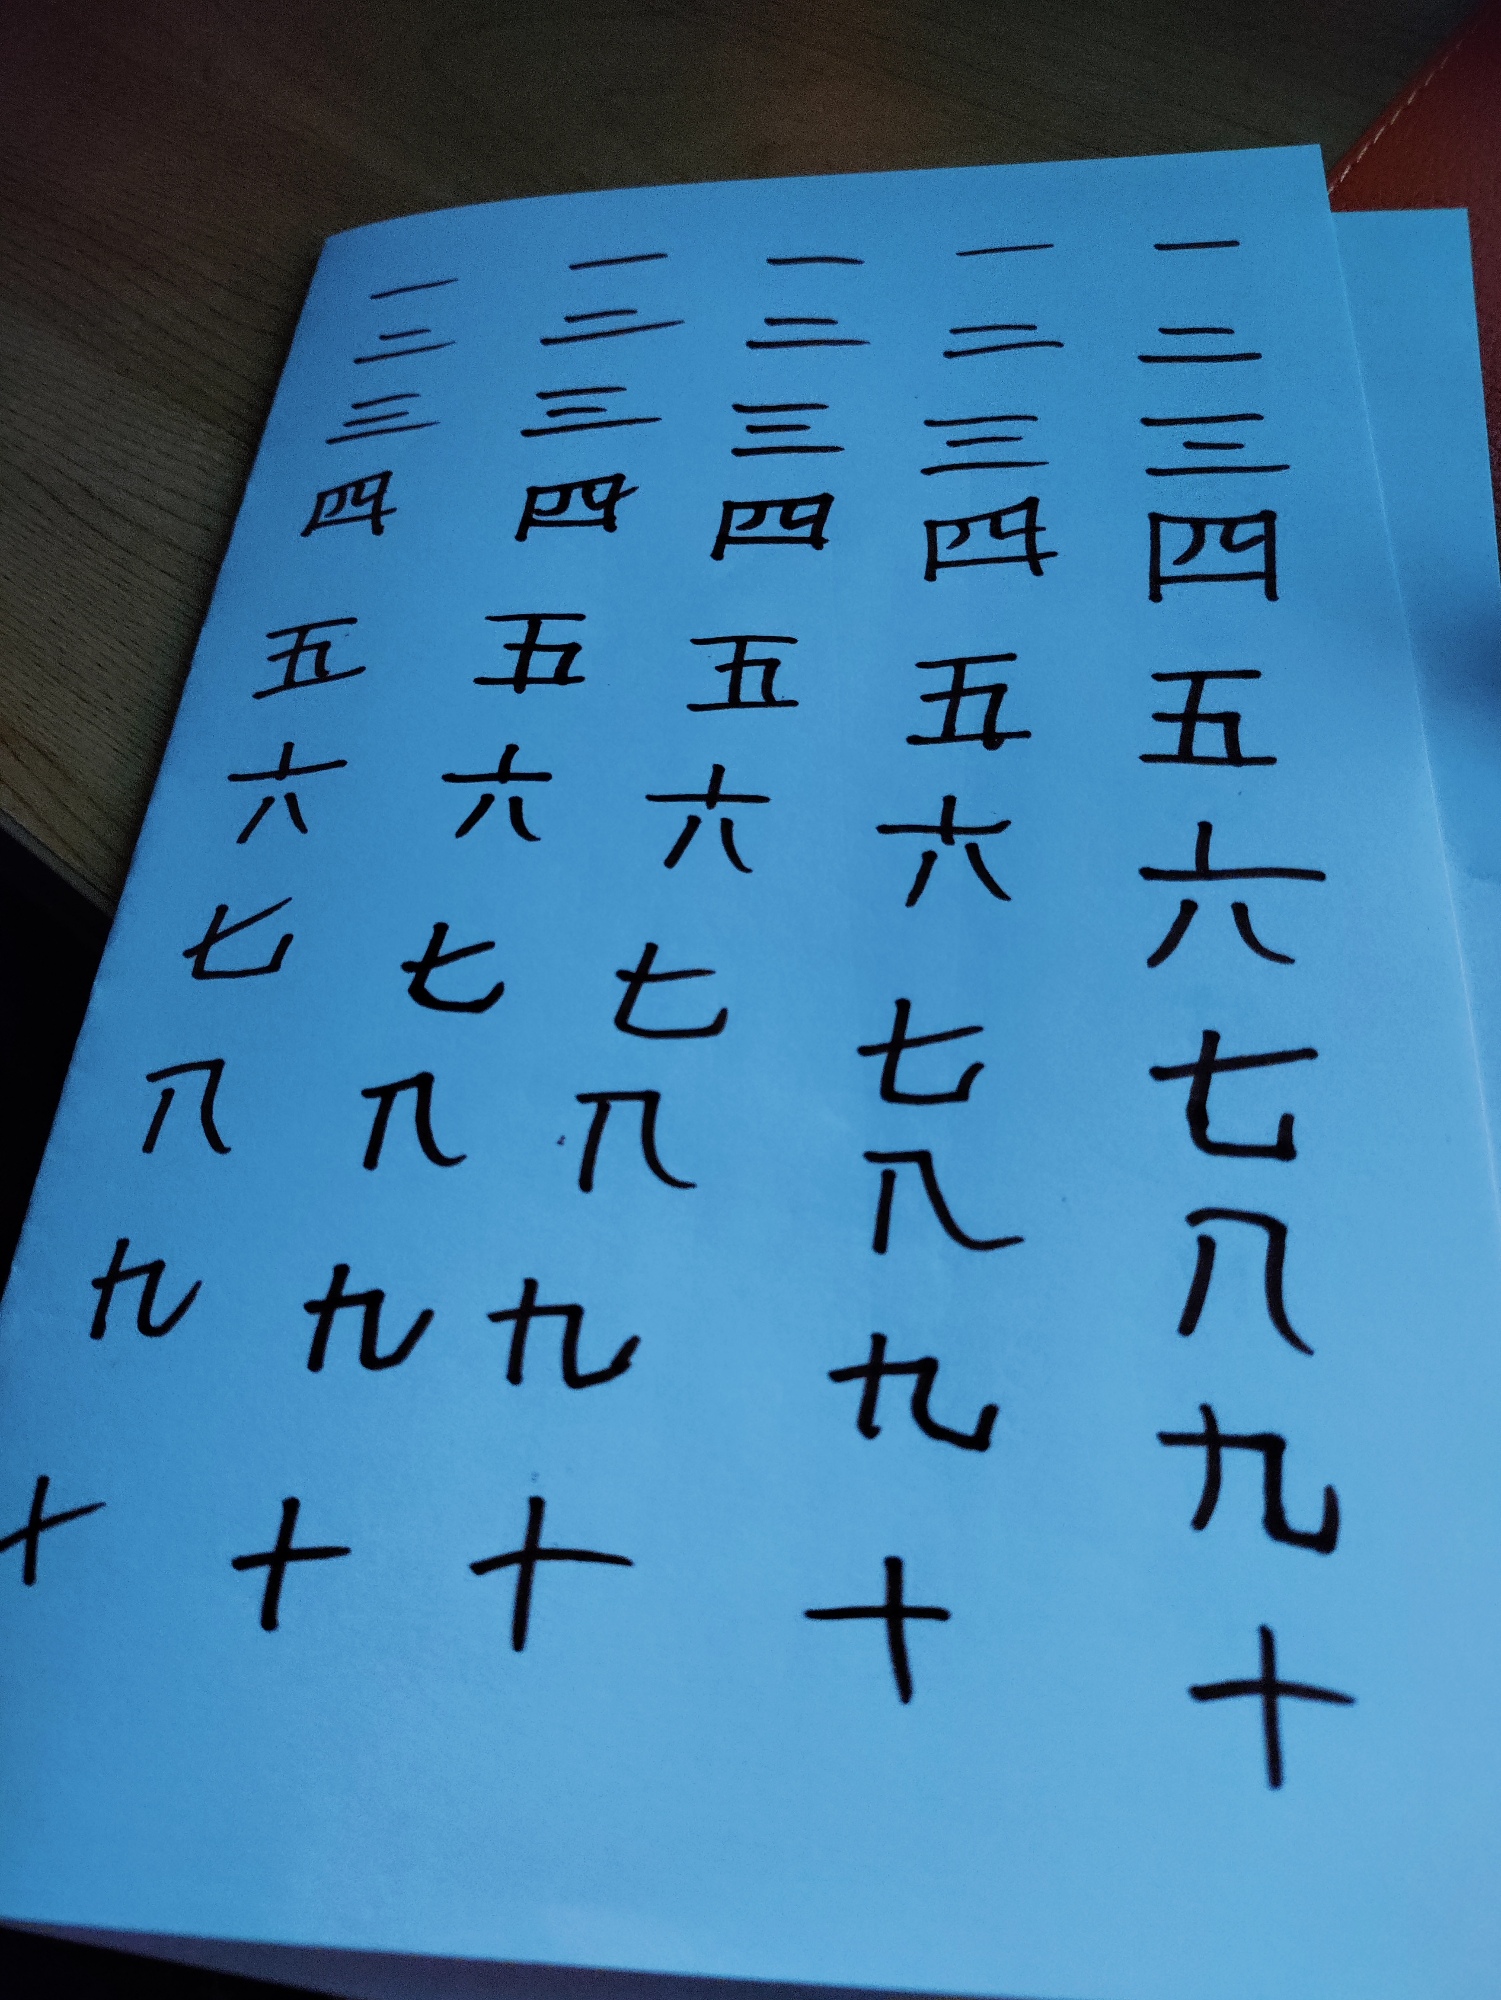 一 一 一 一 一
二 二 二 二 二
三 三 三 三 三
四 四 四 四 四
五 五 五 五 五
六 六 六 六 六
七 七 七 七 七
八 八 八 八 八
九 九 九 九 九
十 十 十 十 十